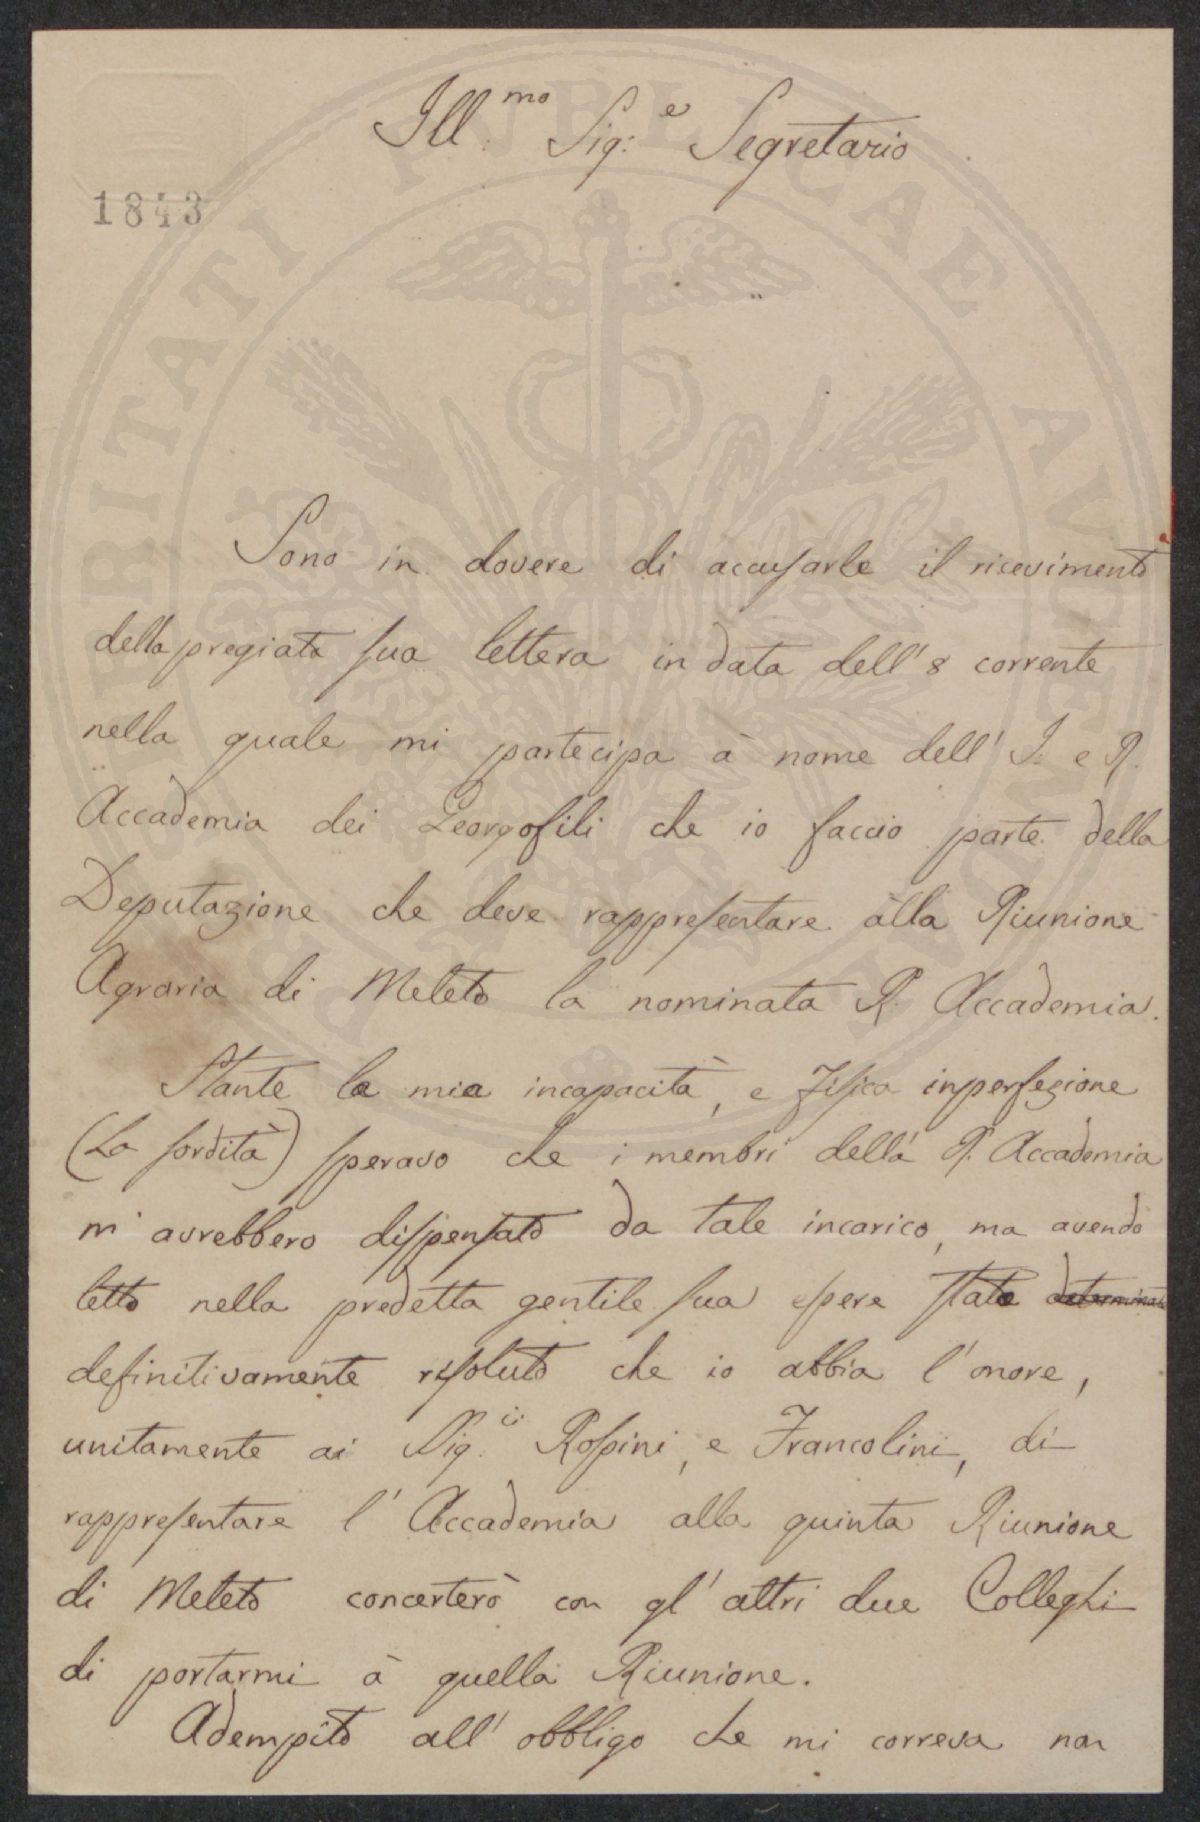 Ill:mo Sig:e Segretario
1843
Sono in dovere di accusarle il ricevimento
della pregiata sua lettera in data dell'8 corrente
nella quale mi partecipa à nome dell'I: e R.
Accademia dei Georgofili che io faccio parte della
Deputazione che deve rappresentare alla Riunione
Agraria di Meleto la nominata R. Accademia.
Stante la mia incapacità, e fisica inperfezione
(La sordità) speravo che i membri della R. Accademia
m'avrebbero dispensato da tale incarico, ma avendo
letto nella predetta gentile sua essere stato determinato
definitivamente risoluto che io abbia l'onore,
unitamente ai Sig.ri Rossini, e Francolini, di
rappresentare l'Accademia alla quinta Riunione
di Meleto concerterò con gl'altri due Colleghi
di portarmi à quella Riunione.
Adempito all'obbligo che mi correva non